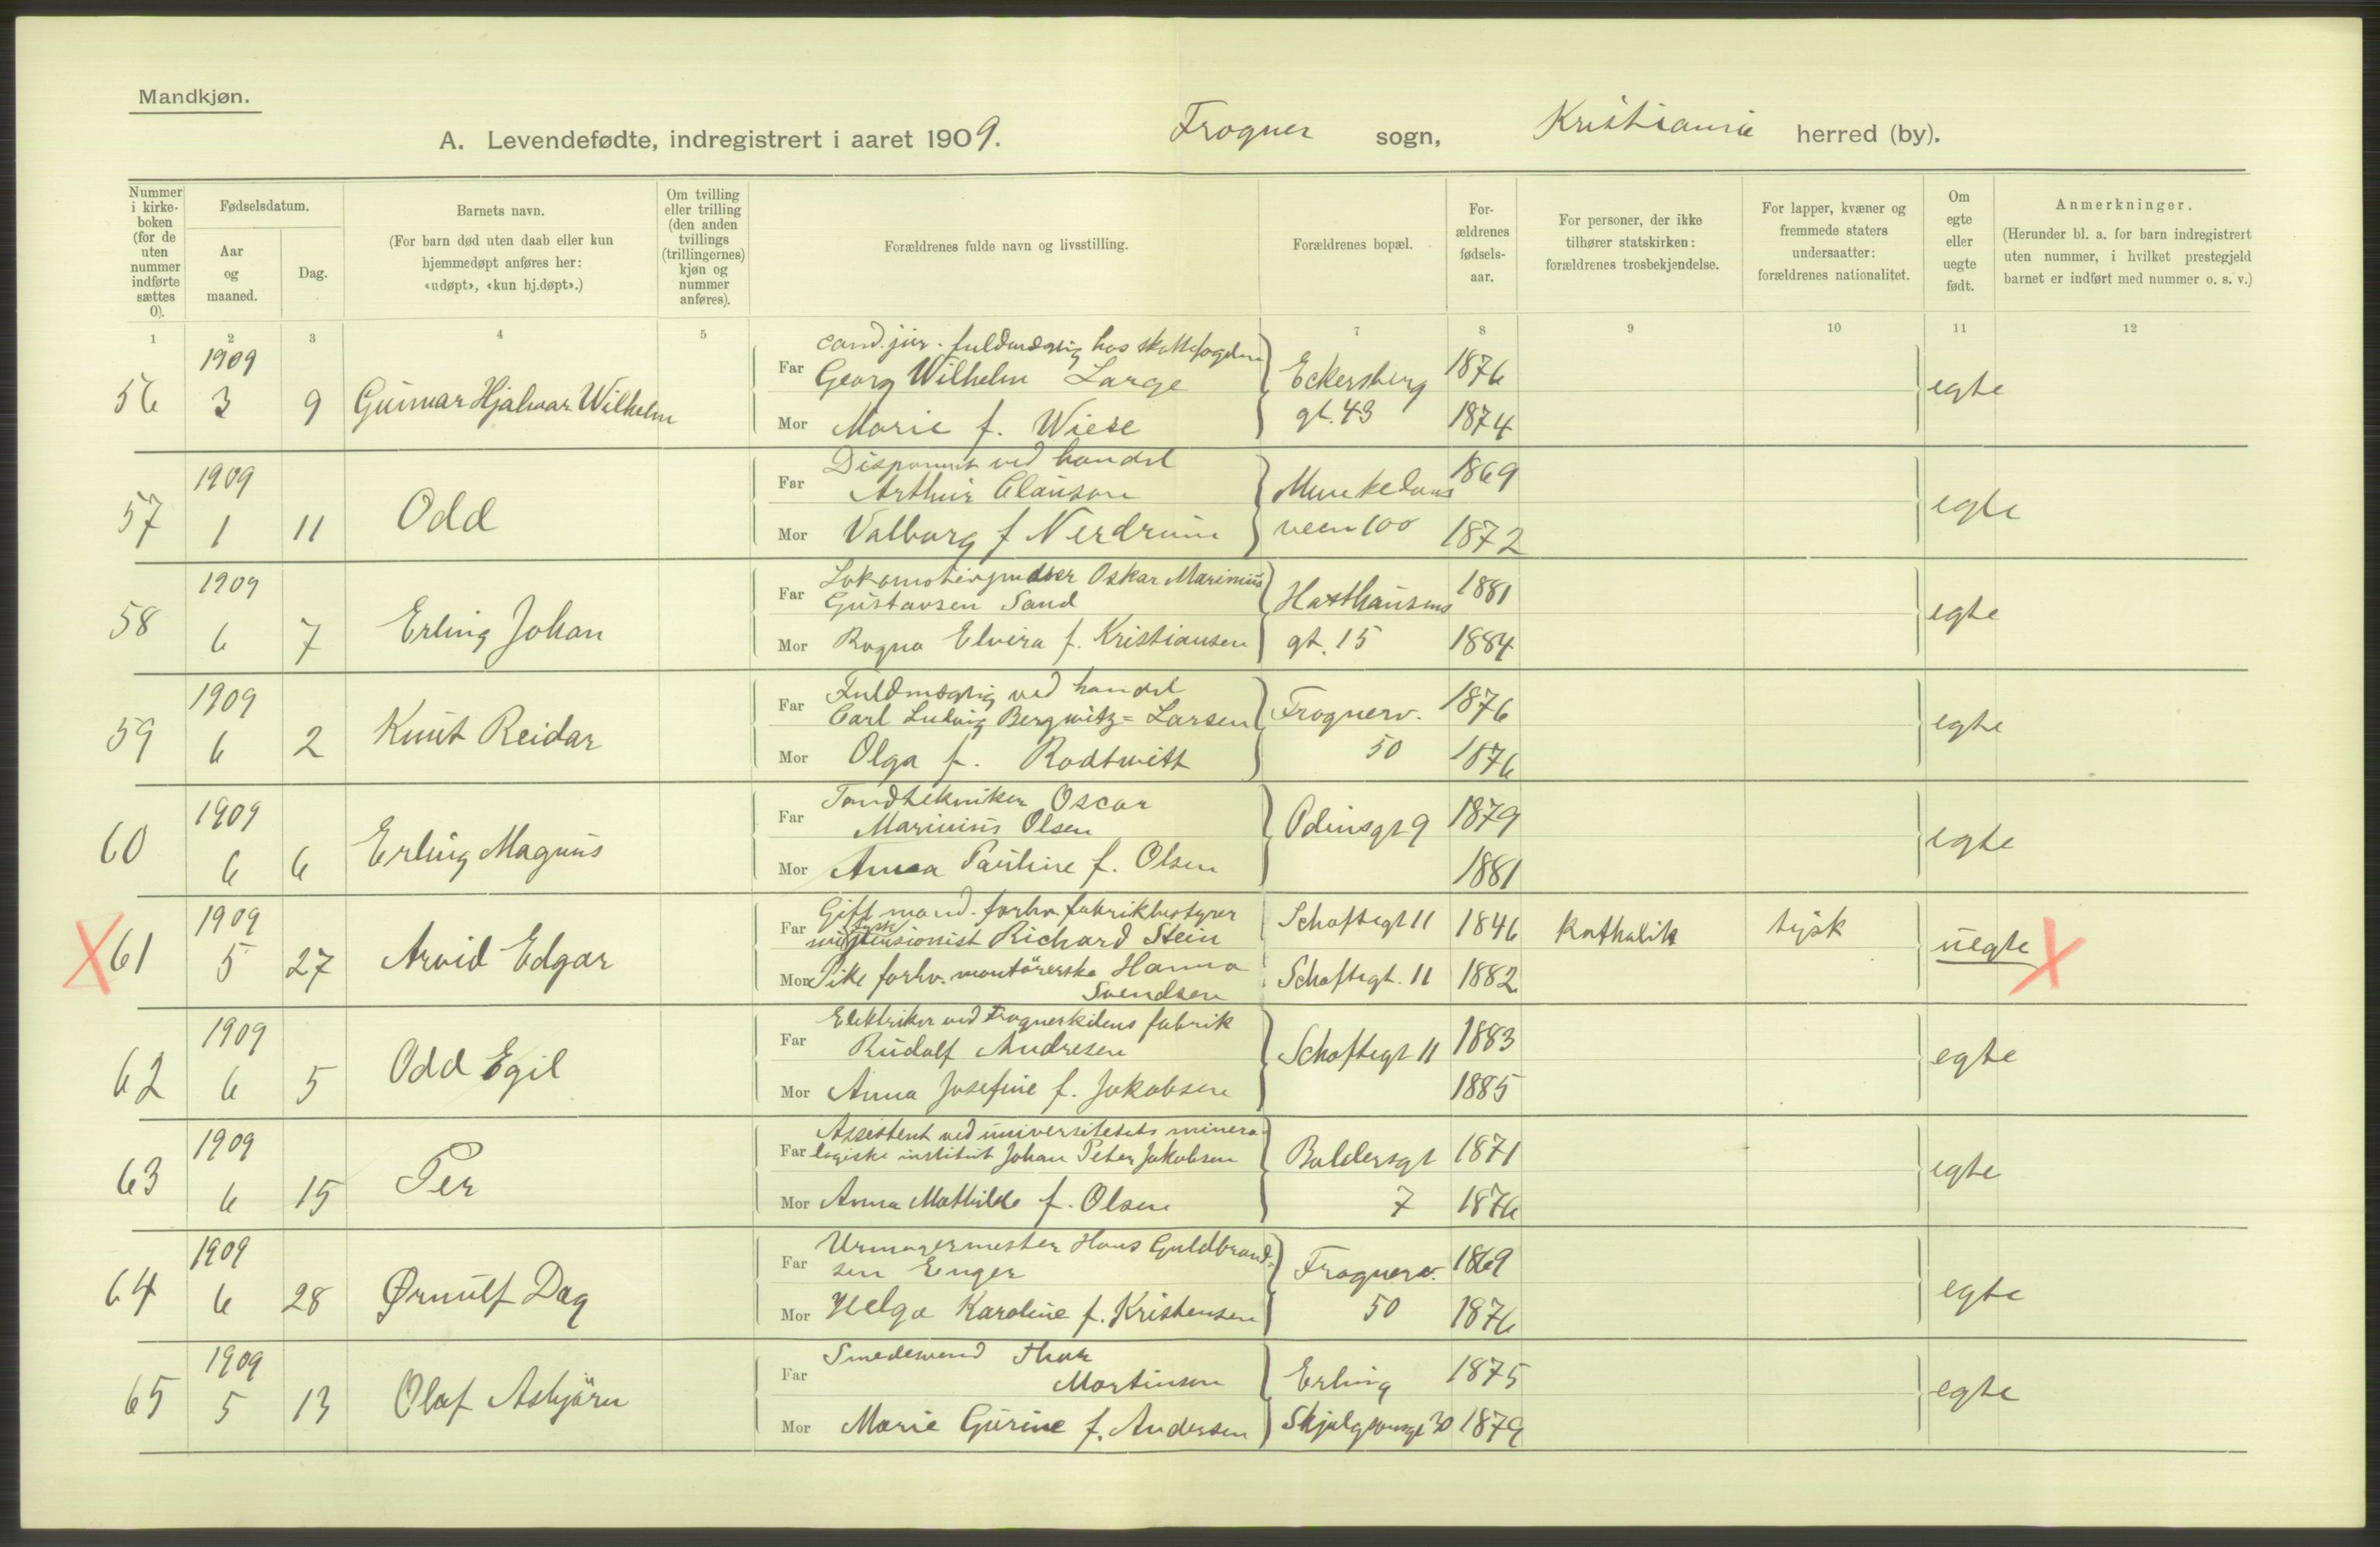 Mandkjøn.
A. Levendefødte, indregistrert i aaret 1909. Frogner sogn, Kristiania herred (by).
Nummer i kirke-boken (for de uten nummer indførte sættes 0).
Fødselsdatum.
Aar og maaned.
Dag.
Barnets navn.
(For barn død uten daab eller kun hjemmedøpt anføres her: «udøpt», «kun hj.døpt».)
Om tvilling eller trilling (den anden tvillings (trillingernes) kjøn og nummer anføres).
Forældrenes fulde navn og livsstilling.
Forældrenes bopæl.
For-ældrenes fødsels-aar.
For personer, der ikke tilhører statskirken: forældrenes trosbekjendelse.
For lapper, kvæner og fremmede staters undersaatter: forældrenes nationalitet.
Om egte eller uegte født.
Anmerkninger.
(Herunder bl. a. for barn indregistrert uten nummer, i hvilket prestegjeld barnet er indført med nummer o. s. v.)
1 2 3 4 5 7 8 9 10 11 12
1909 cand. jur. fuldmægtig hos skattefogden
56 3 9 Gunnar Hjalmar Wilhelm Far Georg Wilhelm Lange Eckersberg 1876 egte
Mor Marie f. Wiese gt. 43 1874
1909 Disponent ved handel
57 1 11 Odd Far Arthur Clauson Munkedams 1869 egte
Mor Valborg f Nerdrum veien 100 1872
1909 Far Lokomotivpudser Oskar Marinius
58 6 7 Erling Johan Gustavsen Sand Haxthausens 1881 egte
Mor Ragna Elvira f. Kristiansen gt. 15 1884
1909 Far Fuldmægtig ved handel
59 6 2 Knut Reidar Carl Ludvig Bergwitz=Larsen Frognerv. 1876 egte
Mor Olga f. Rodtwitt 50 1876
1909 Far Tandtekniker Oscar
60 6 6 Erling Magnus Marinius Olsen Odinsgt 9 1879 egte
Mor Anna Pauline f. Olsen 1881
1909 Far Gift mand. forhv. fabrikbestyrer
61 5 27 Arvid Edgar pensionist Richard Stein Schaftsgt 11 1846 Katholik tysk uegte
Mor Pike forhv. montörerske Hanna Schaftsgt. 11 1882
Svendsen
1909 Elektriker ved Frognerkilens fabrik
62 6 5 Odd Egil Far Rudolf Andresen Schaftsgt 11 1883 egte
Mor Anna Josefine f. Jakobsen 1885
1909 Assistent ved universitetets minera-
63 6 15 Per Far logiske institut Johan Peter Jakobsen Baldersgt 1871 egte
Mor Anna Mathilde f. Olsen 7 1876
1909 Far Urmagermester Hans Guldbrand-
64 6 28 Ørnulf Dag sen Enger Frognerv. 1869 egte
Mor Helga Karoline f. Kristensen 50 1876
1909 Far Smedesvend Thor
65 5 13 Olaf Asbjörn Martinsen Erling 1875 egte
Mor Marie Gurine f. Andersen Skjalgsonsgt 30 1879